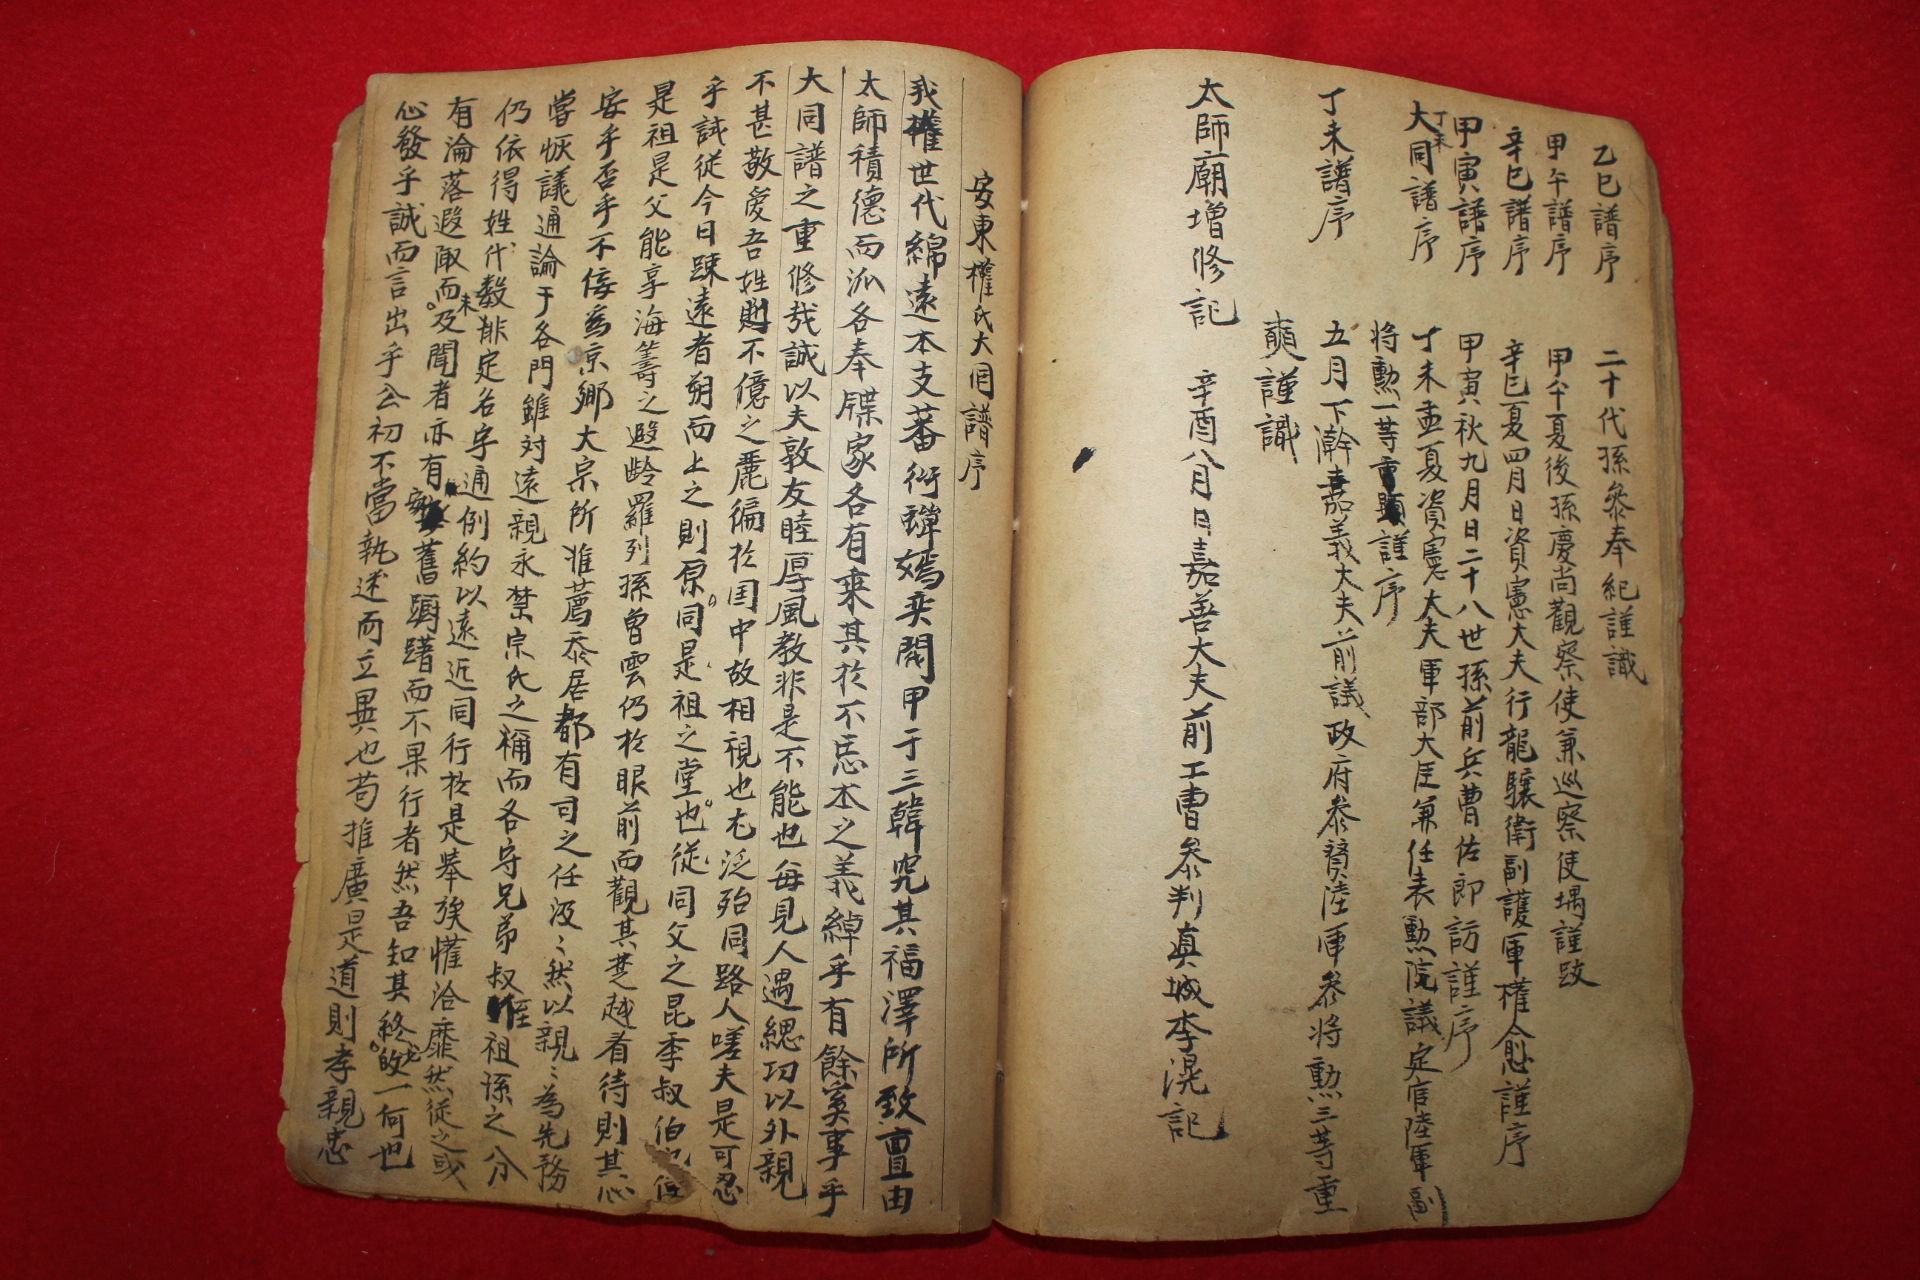 乙巳譜序 二十代孫參奉紀謹識
甲午譜序 甲午夏後孫慶尚觀察使兼巡察使堣謹跋
辛巳譜序 辛巳夏四月日資憲大夫行龍驤衛副護軍權㥠謹序
甲寅譜序 甲寅秋九月日二十八世孫前兵曹佐郎訪謹序
丁未
大同譜序 丁未孟夏資憲大夫軍部大臣兼任表勲院議定官陸軍副
將勲一等重顯謹序
丁未譜序 五月下澣嘉義大夫前議政府參贊陸軍參將勲三等重
奭謹識
太師廟增修記 辛酉八月日嘉善大夫前工曹參判真城李滉記
安東權氏大同譜序
我權世代綿遠本支蕃衍蟬嫣奕閥甲于三韓究其福澤所致亶由
太師積德而派各奉牒家各有乘其於不忘本之義綽乎有餘奚事乎
大同譜之重修哉誠以夫敦友睦厚風教非是不能也每見人遇緦功以外親
不甚敬愛吾姓則不億之麗徧於国中故相視也尤泛殆同路人嗟夫是可忍
乎試從今日踈遠者朔而上之則原同是祖之堂也從同父之昆季叔伯
是祖是父能享海籌之遐齡羅列孫曾雲仍於眼前而觀其楚越看待則其心
安乎否乎不佞為京鄉大宗所推薦忝居都有司之任汲〻然以親〻為先務
嘗恢議通論于各門雖対遠親永禁宗氏之稱而各守兄弟叔侄祖孫之分
仍依得姓代數排定名字通例約以遠近同行於是舉族懽洽靡然從之或
有淪落遐陬而未及聞者亦有安舊躕躇而不果行者然吾知其終始一何也
心發乎誠而言出乎公初不當執迷而立異也苟推廣是道則孝親忠